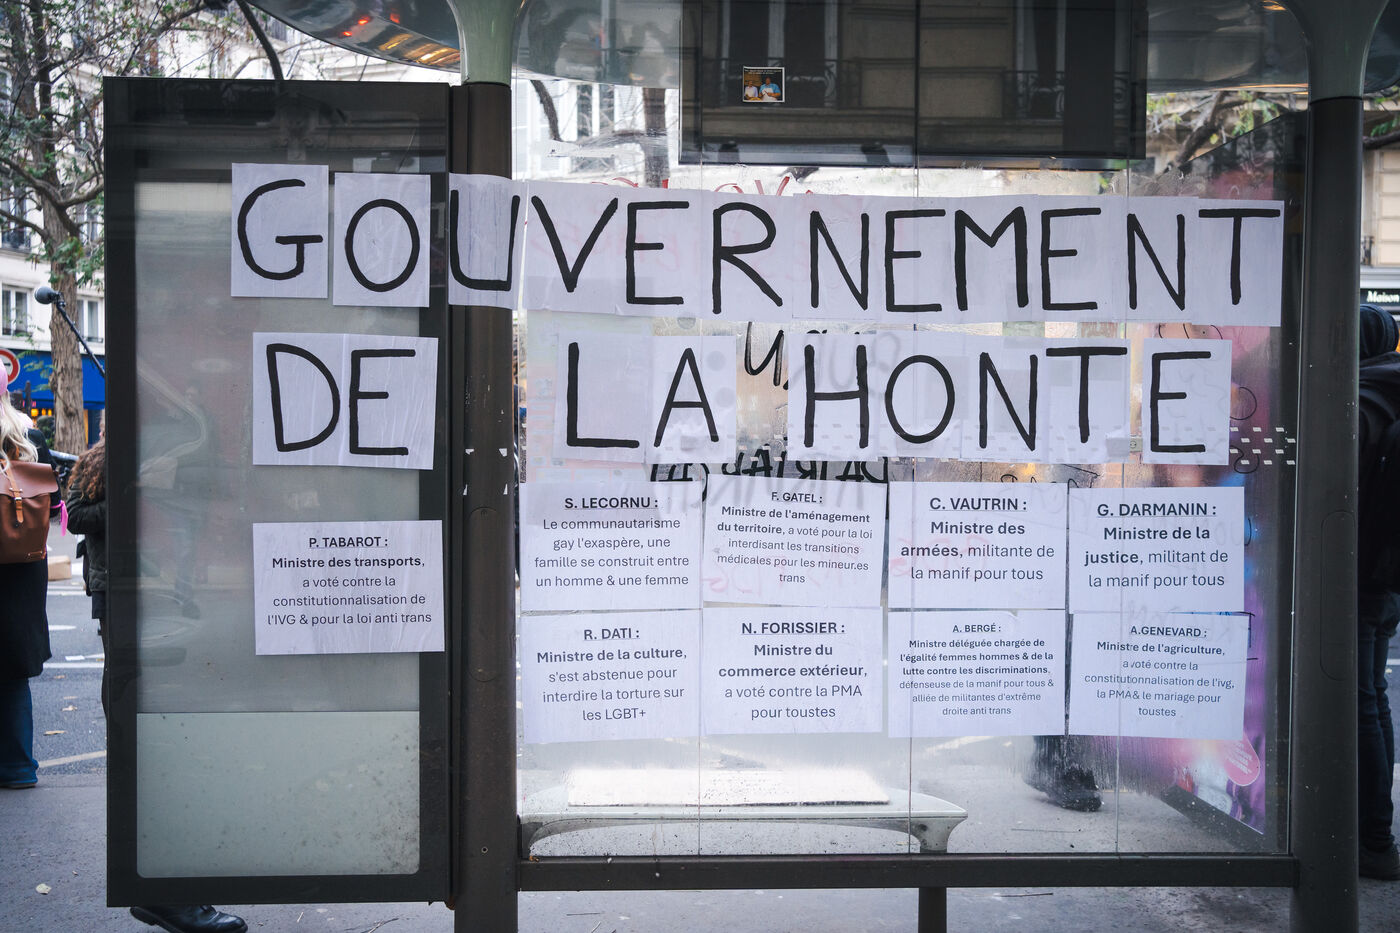 GOUVERNEMENT
DE LA HONTE
P. TABAROT :
Ministre des transports,
a voté contre la
constitutionnalisation de
l'IVG & pour la loi anti trans
S. LECORNU :
Le communautarisme
gay l'exaspère, une
famille se construit entre
un homme & une femme
F. GATEL :
Ministre de l'aménagement
du territoire, a voté pour la loi
interdisant les transitions
médicales pour les mineur.es
trans
C. VAUTRIN :
Ministre des
armées, militante de
la manif pour tous
G. DARMANIN :
Ministre de la
justice, militant de
la manif pour tous
R. DATI :
Ministre de la culture,
s'est abstenue pour
interdire la torture sur
les LGBT+
N. FORISSIER :
Ministre du
commerce extérieur,
a voté contre la PMA
pour toustes
A. BERGÉ :
Ministre déléguée chargée de
l'égalité femmes hommes & de la
lutte contre les discriminations,
défenseuse de la manif pour tous &
alliée de militantes d'extrême
droite anti trans
A.GENEVARD :
Ministre de l'agriculture,
a voté contre la
constitutionnalisation de l'ivg,
la PMA& le mariage pour
toustes
Maison